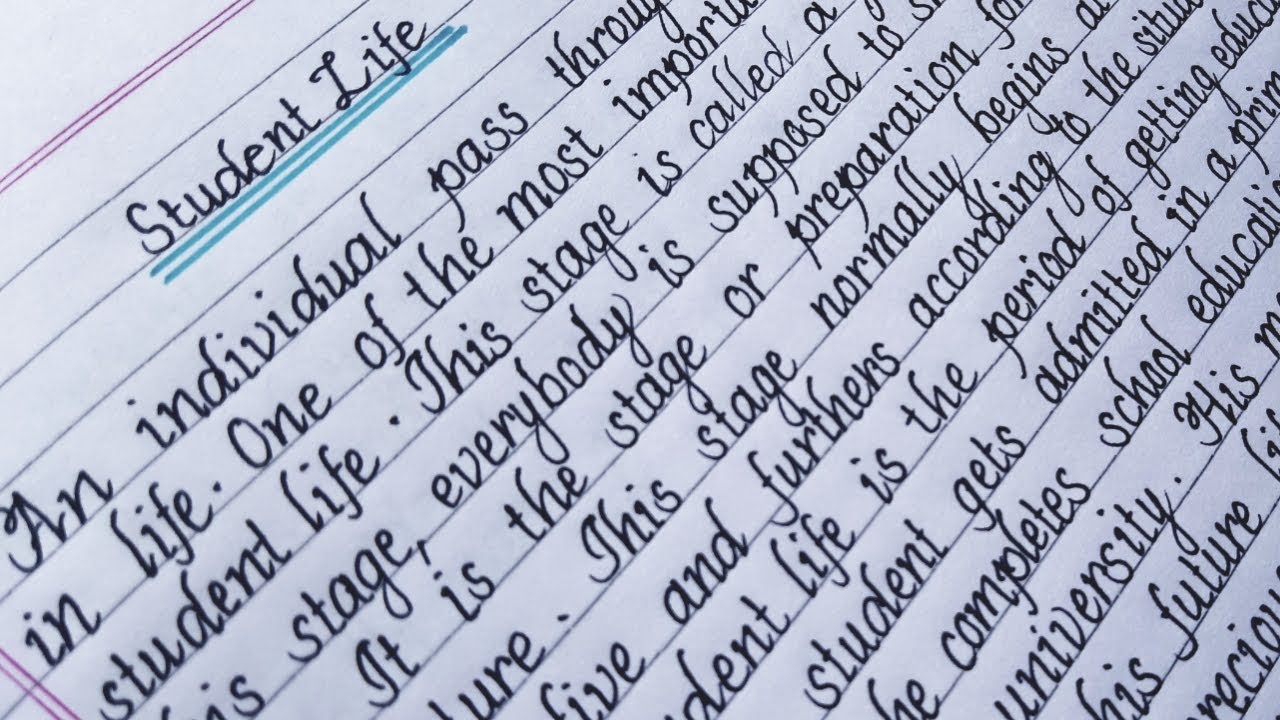 Student Life
An individual pass
in life. One of the most
student life. This stage is called a
stage, everybody is supposed to
It is the stage or preparation
This stage normally begins
five and furthers according to the
life is the period of getting
student gets admitted in a
completes school
university. His
his future